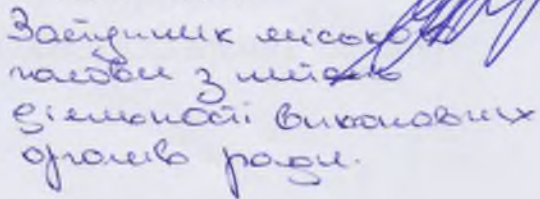 Заступник міського
голови з питань
діяльності виконавчих
органів ради.